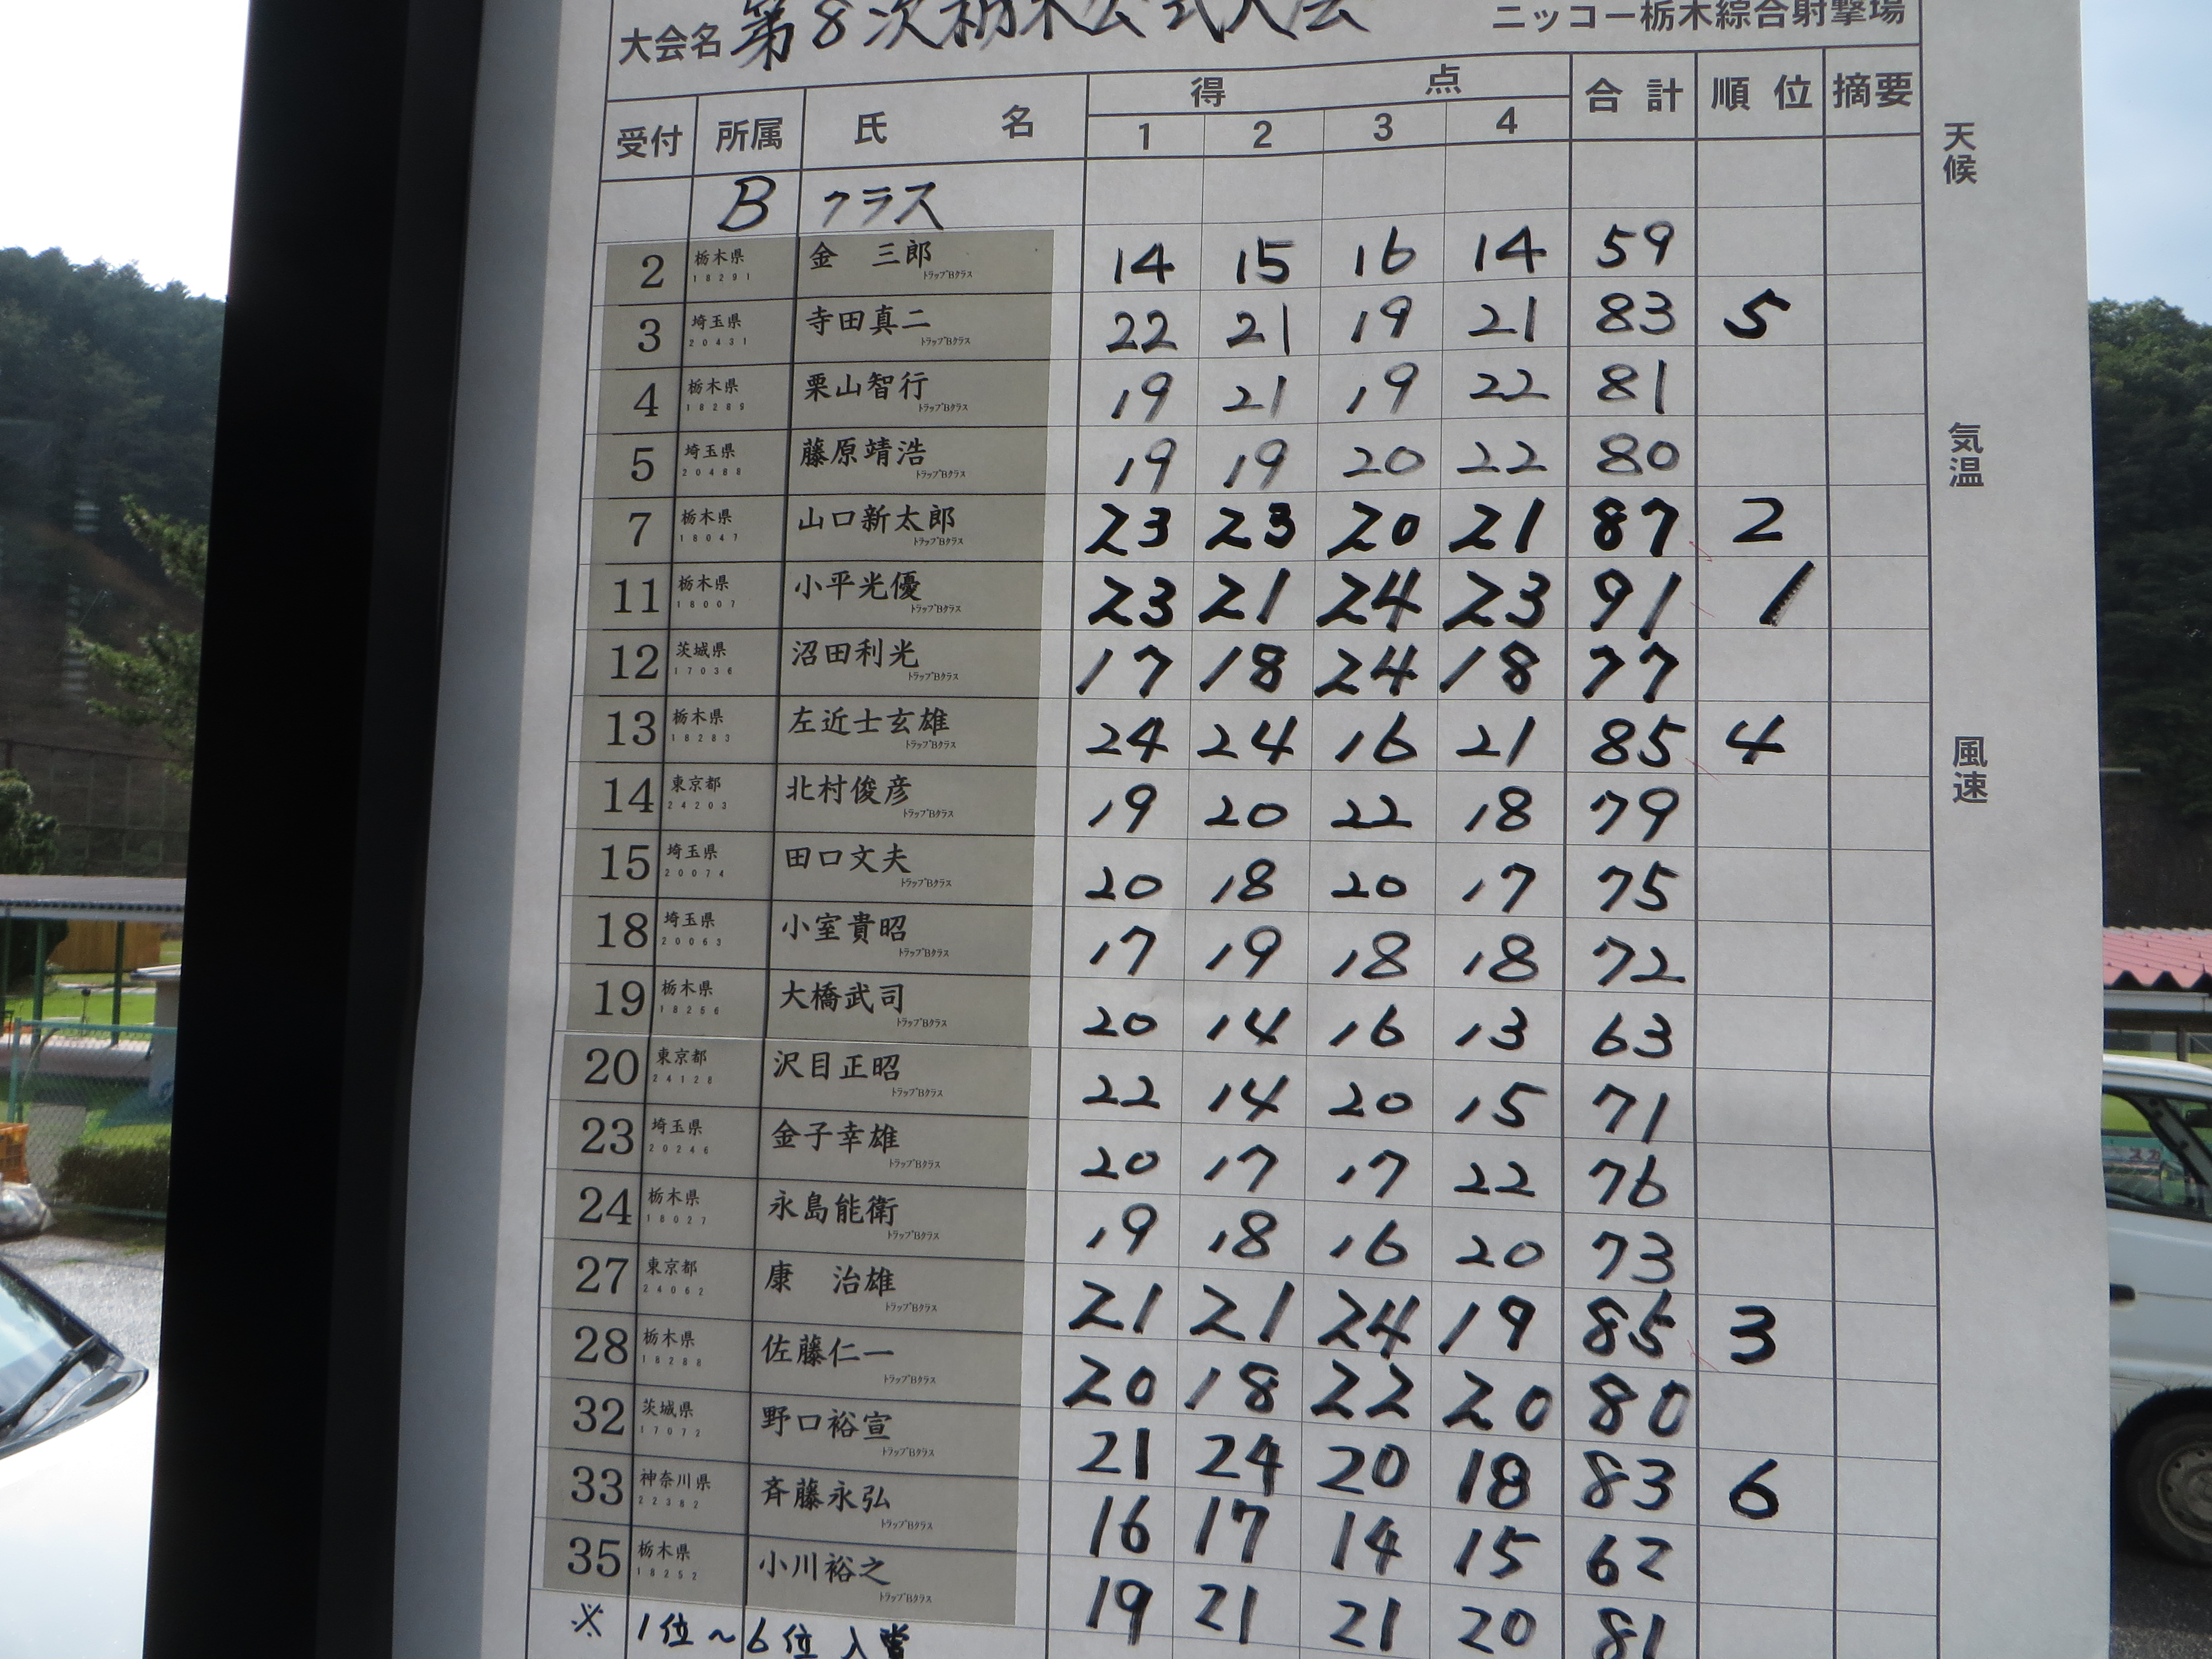 大会名 第8次栃木公式大会 ニッコー栃木綜合射撃場
受付 所属 氏名 得点 合計 順位 摘要
1 2 3 4
B クラス
2 栃木県 18291 金 三郎 トラップBクラス 14 15 16 14 59
3 埼玉県 20431 寺田真二 トラップBクラス 22 21 19 21 83 5
4 栃木県 18289 栗山智行 トラップBクラス 19 21 19 22 81
5 埼玉県 20488 藤原靖浩 トラップBクラス 19 19 20 22 80
7 栃木県 18047 山口新太郎 トラップBクラス 23 23 20 21 87 2
11 栃木県 18007 小平光優 トラップBクラス 23 21 24 23 91 1
12 茨城県 17036 沼田利光 トラップBクラス 17 18 24 18 77
13 栃木県 18283 左近士玄雄 トラップBクラス 24 24 16 21 85 4
14 東京都 24203 北村俊彦 トラップBクラス 19 20 22 18 79
15 埼玉県 20074 田口文夫 トラップBクラス 20 18 20 17 75
18 埼玉県 20063 小室貴昭 トラップBクラス 17 19 18 18 72
19 栃木県 18256 大橋武司 トラップBクラス 20 14 16 13 63
20 東京都 24128 沢目正昭 トラップBクラス 22 14 20 15 71
23 埼玉県 20246 金子幸雄 トラップBクラス 20 17 17 22 76
24 栃木県 18027 永島能衛 トラップBクラス 19 18 16 20 73
27 東京都 24062 康 治雄 トラップBクラス 21 21 24 19 85 3
28 栃木県 18288 佐藤仁一 トラップBクラス 20 18 22 20 80
32 茨城県 17072 野口裕宣 トラップBクラス 21 24 20 18 83 6
33 神奈川県 22382 斉藤永弘 トラップBクラス 16 17 14 15 62
35 栃木県 18252 小川裕之 トラップBクラス 19 21 21 20 81
※ 1位～6位入賞
天候
気温
風速